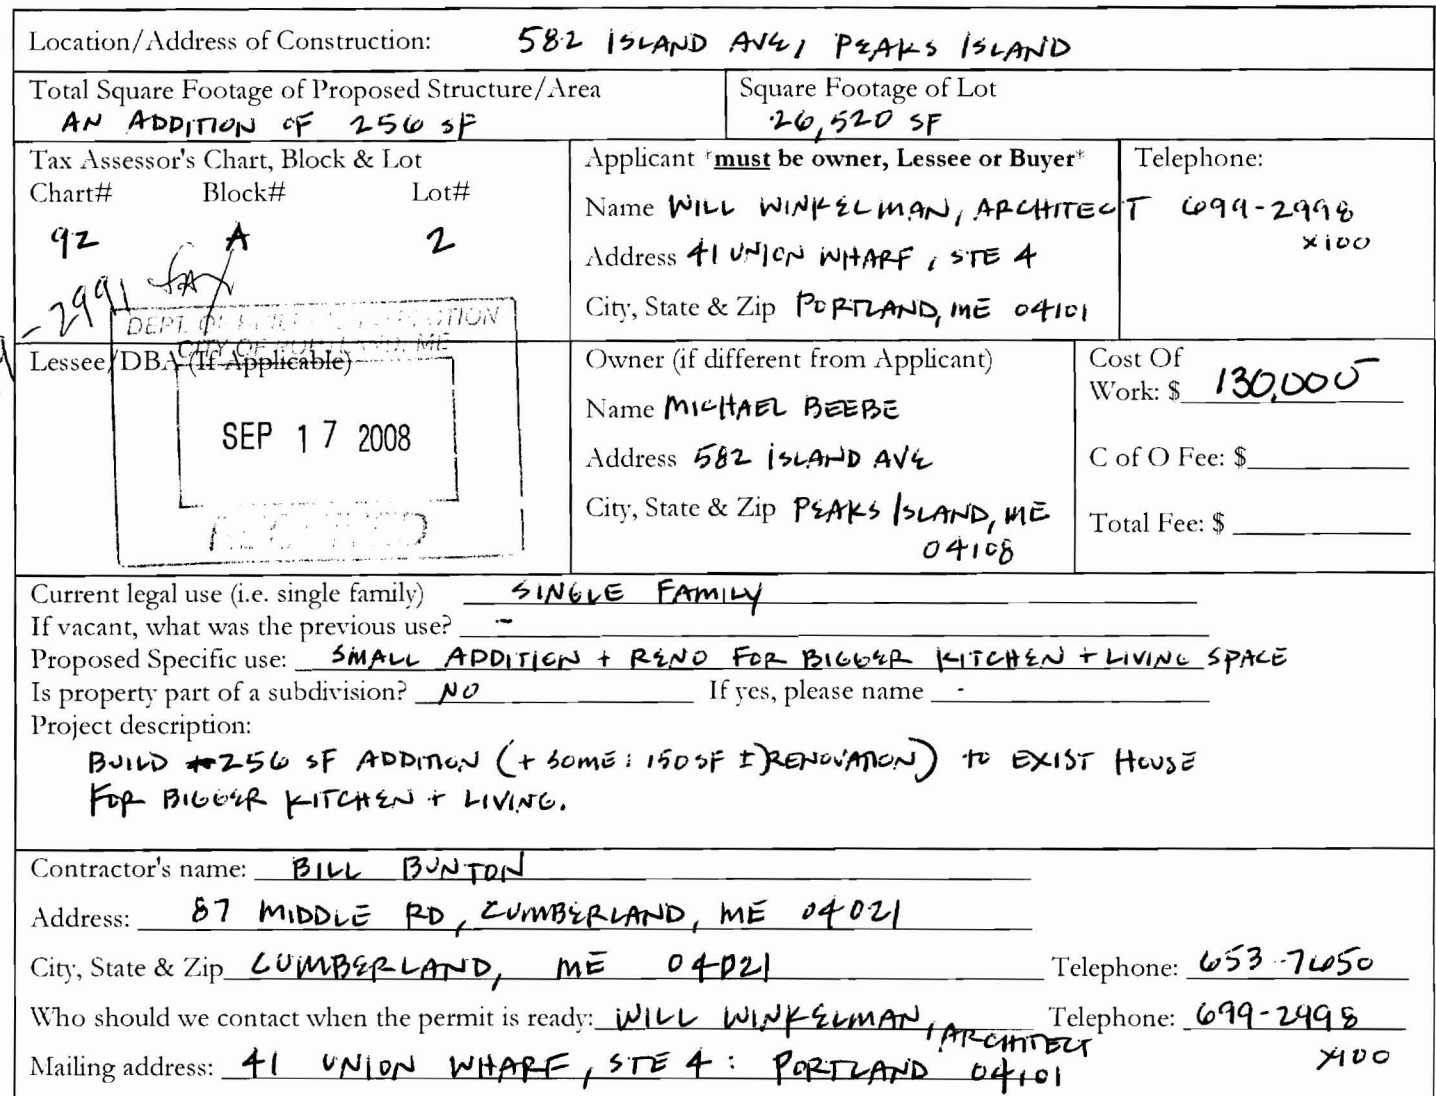 Location/Address of Construction: 582 ISLAND AVE, PEAKS ISLAND
Total Square Footage of Proposed Structure/Area
AN ADDITION OF 256 SF
Square Footage of Lot
26,520 SF
Tax Assessor's Chart, Block & Lot
Chart# Block# Lot#
92 A 2
-2991 fax
Applicant *must be owner, Lessee or Buyer*
Name WILL WINKELMAN, ARCHITECT
Address 41 UNION WHARF, STE 4
City, State & Zip PORTLAND, ME 04101
Telephone:
699-2998
x100
DEPT. OF
CITY OF PORTLAND, ME
Lessee/DBA (If Applicable)
SEP 17 2008
Owner (if different from Applicant)
Name MICHAEL BEEBE
Address 582 ISLAND AVE
City, State & Zip PEAKS ISLAND, ME
04108
Cost Of
Work: $ 130,000
C of O Fee: $
Total Fee: $
Current legal use (i.e. single family) SINGLE FAMILY
If vacant, what was the previous use? -
Proposed Specific use: SMALL ADDITION + RENO FOR BIGGER KITCHEN + LIVING SPACE
Is property part of a subdivision? NO If yes, please name -
Project description:
BUILD 256 SF ADDITION (+ SOME: 150 SF ± RENOVATION) TO EXIST HOUSE
FOR BIGGER KITCHEN + LIVING.
Contractor's name: BILL BUNTON
Address: 87 MIDDLE RD, CUMBERLAND, ME 04021
City, State & Zip CUMBERLAND, ME 04021 Telephone: 653-7650
Who should we contact when the permit is ready: WILL WINKELMAN, ARCHITECT Telephone: 699-2998
x100
Mailing address: 41 UNION WHARF, STE 4: PORTLAND 04101